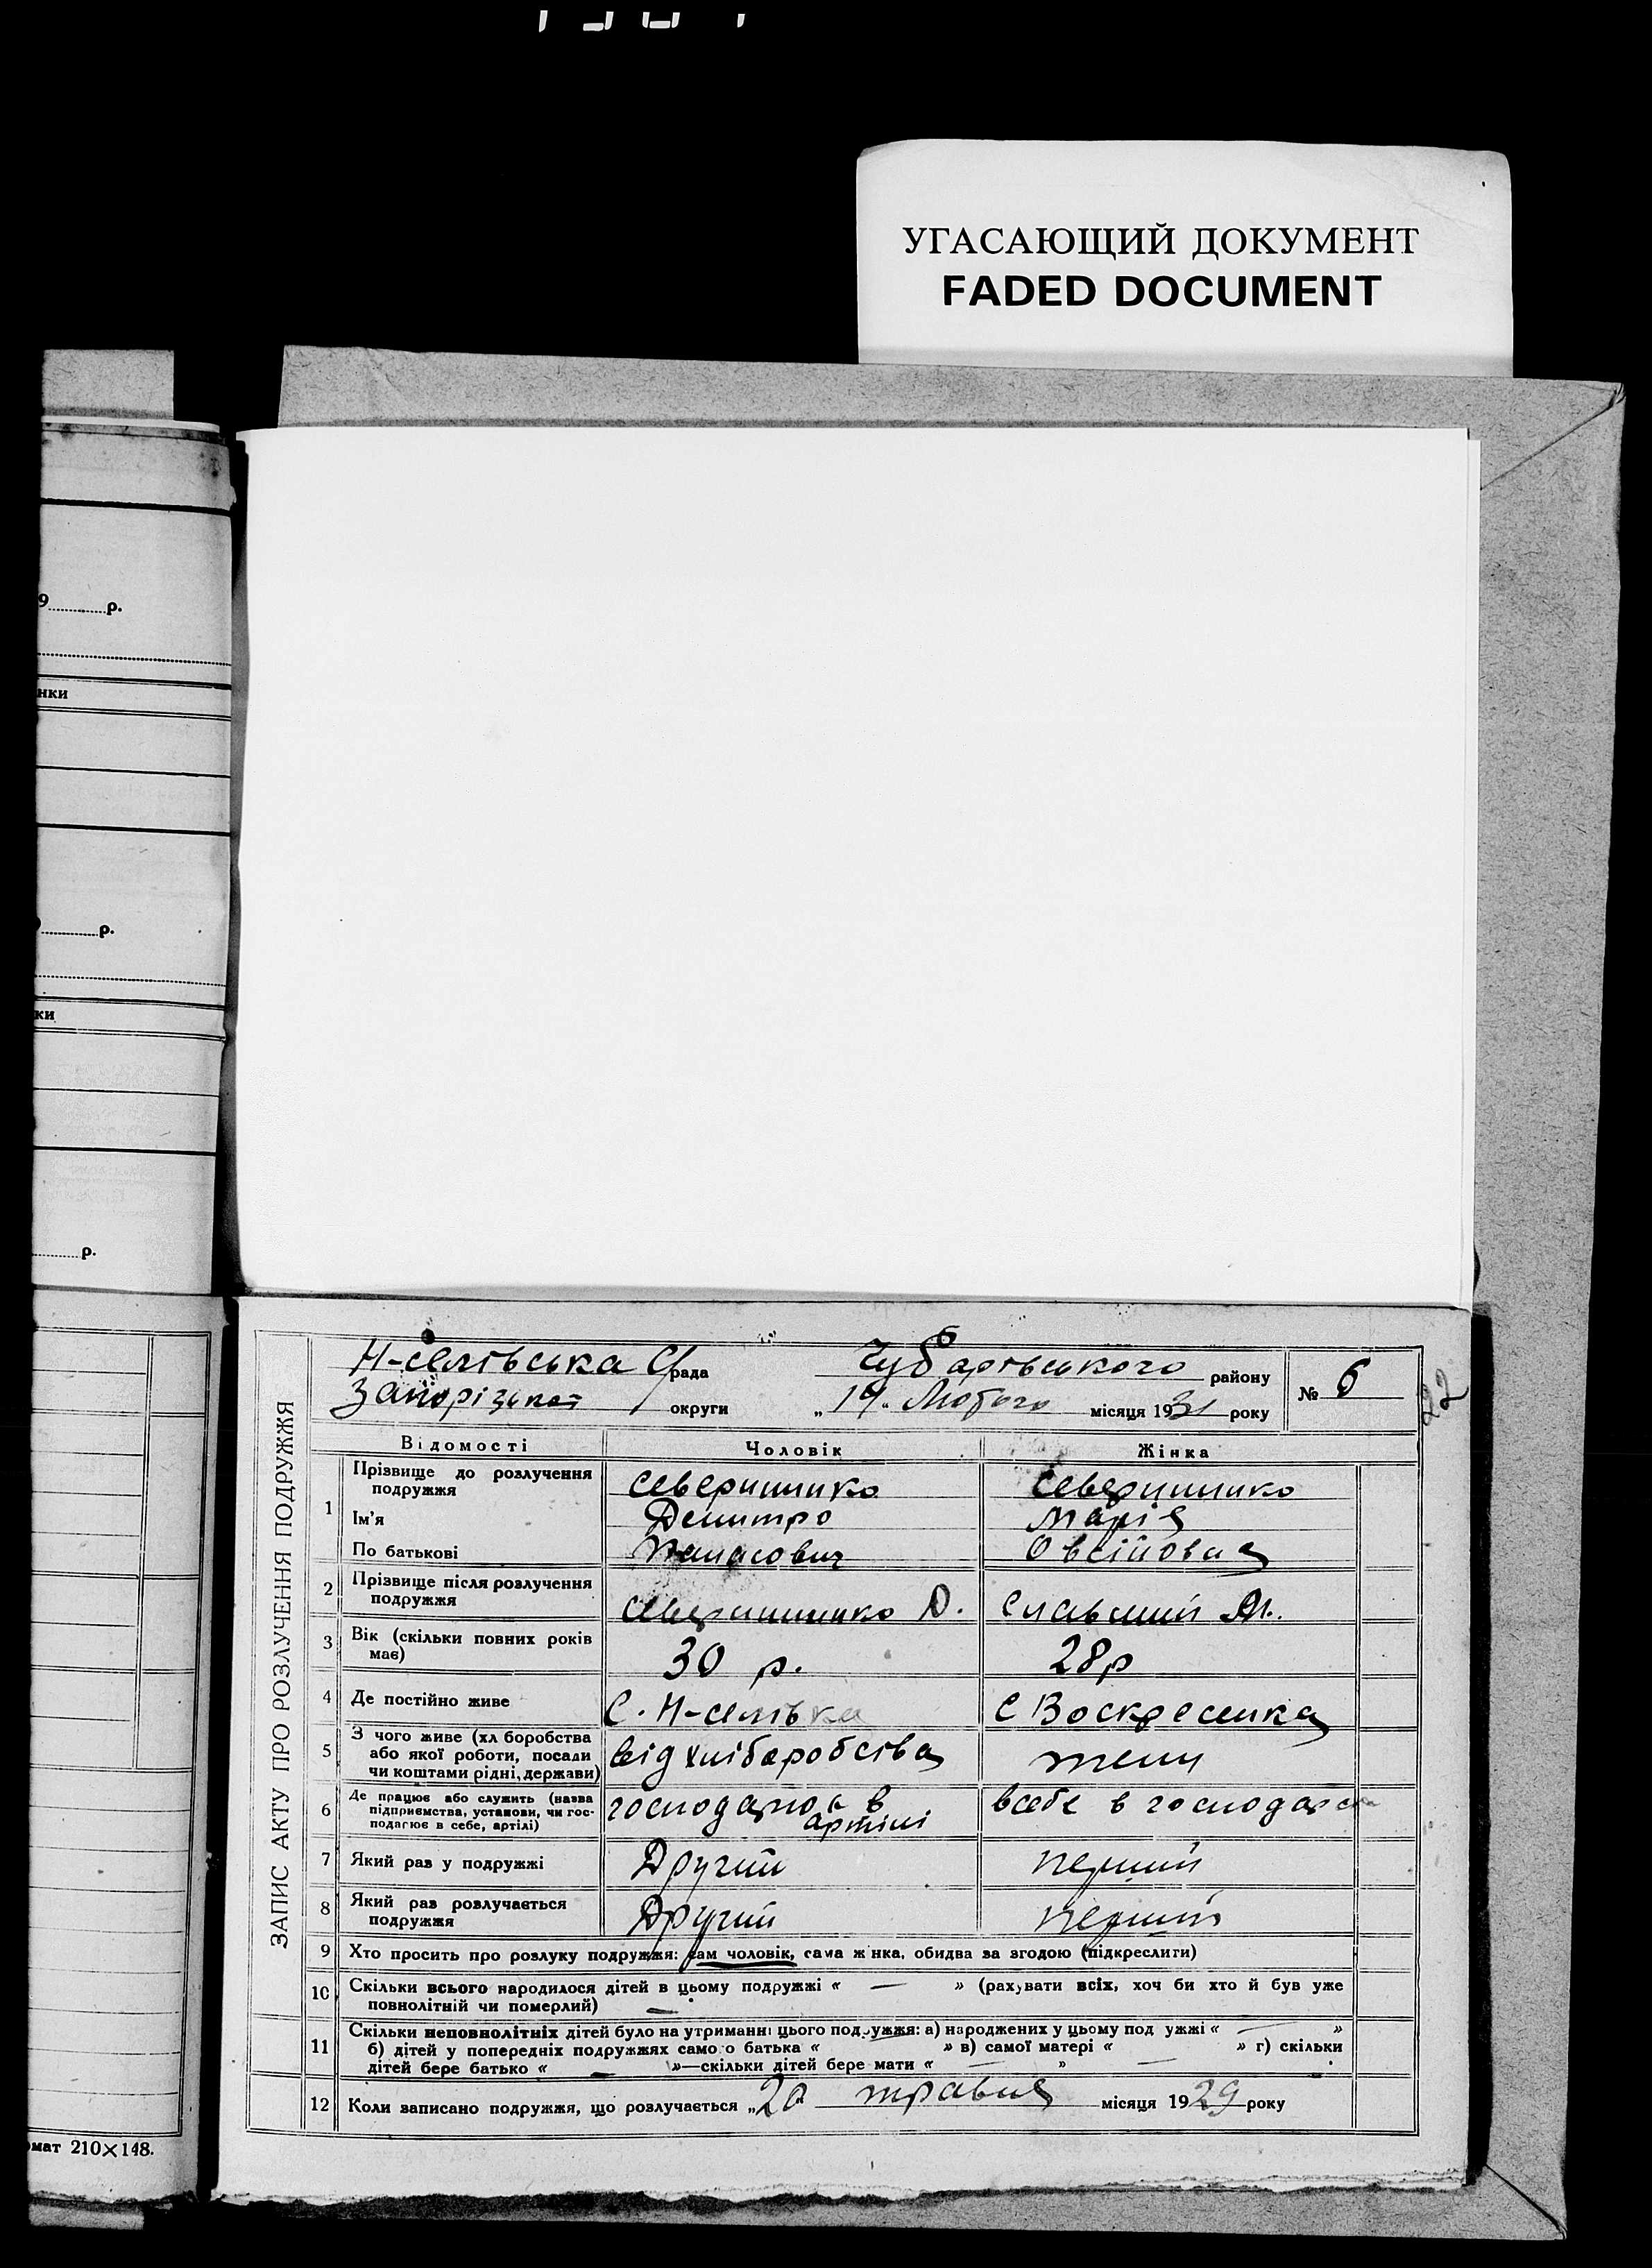 УГАСАЮЩИЙ ДОКУМЕНТ
FADED DOCUMENT
9 р.
нки
р.
ки
р.
мат 210×148.
ЗАПИС АКТУ ПРО РОЗЛУЧЕННЯ ПОДРУЖЖЯ
Н-селівська С/рада Чубарівського району № 6
22
Запорізької округи „14" Лютого місяця 1931 року
Відомості Чоловік Жінка
1 Прізвище до розлучення
подружжя Северишнко Северишнко
Ім'я Демитро Марія
По батькові Панасович Овсійовна
2 Прізвище після розлучення
подружжя Д. М.
3 Вік (скільки повних років
має) 30 р. 28 р
4 Де постійно живе С. Н-селівка С Воскресенка
5 З чого живе (хл боробства
або якої роботи, посади
чи коштами рідні, держави) від хліборобства тещи
6 Де працює або служить (назва
підприємства, установи, чи гос-
подарює в себе, артілі) в артілі всебе в
7 Який раз у подружжі Другий перший
8 Який раз розлучається
подружжя Другий перший
9 Хто просить про розлуку подружжя: сам чоловік, сама ж нка, обидва за згодою (підкреслити)
10 Скільки всього народилося дітей в цьому подружжі « — » (рахувати всіх, хоч би хто й був уже
повнолітній чи померлий) —
11 Скільки неповнолітніх дітей було на утриманні цього подружжя: а) народжених у цьому под ужжі « — »
б) дітей у попередніх подружжях само о батька « » в) самої матері « » г) скільки
дітей бере батько « — »—скільки дітей бере мати « — » —
12 Коли записано подружжя, що розлучається „20 травня місяця 1929 року